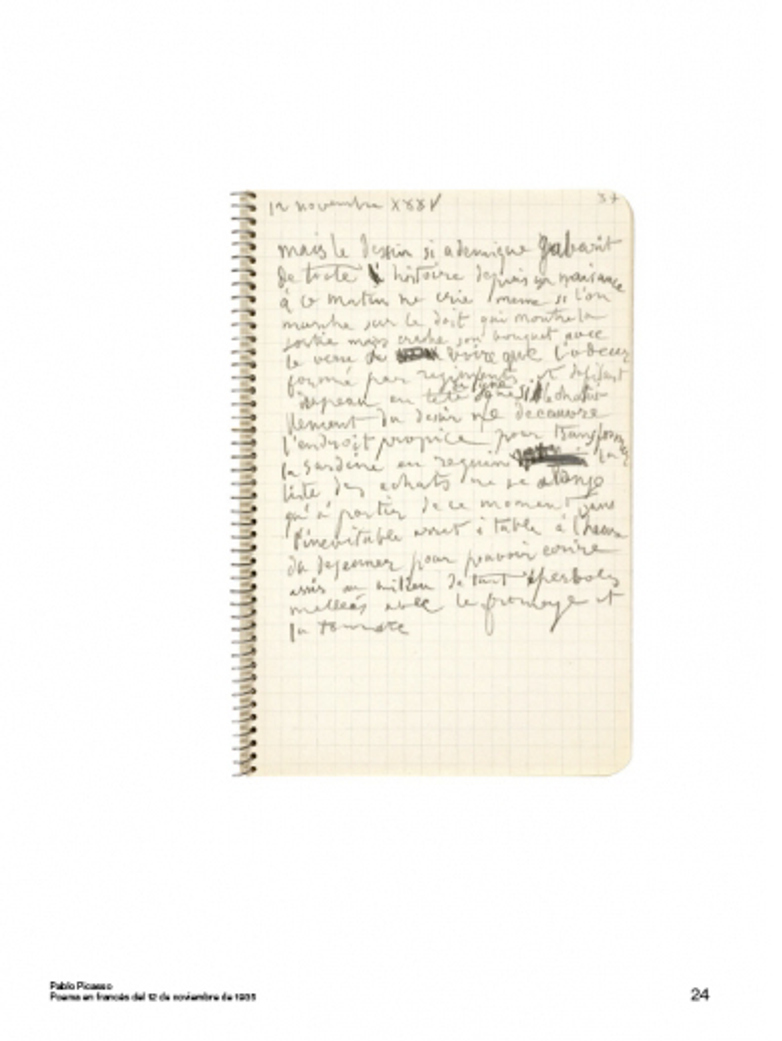 12 novembre XXXV
mais le dessin si ademique gabarit
de toute l histoire depuis sa naisance
à ce matin ne crie meme si l'on
marche sur le doit qui montre la
sortie mais crache son bouquet avec
le verre de voire que l'odeur
formé par regiments et defilant
drapeau en tête que si le chatouil
llement du desir ne decouvre
l'endroit propice pour transformer
la sardine en requin la
liste des achats ne se alonge
qu'à partir de ce moment sans
l'inevitable arret à table à l'heure
du dejeuner pour pouvoir ecrire
assis au milieu de tant d'iperboles
melleés avec le fromage et
la tomate
Pablo Picasso
Poema en francés del 12 de noviembre de 1935
24